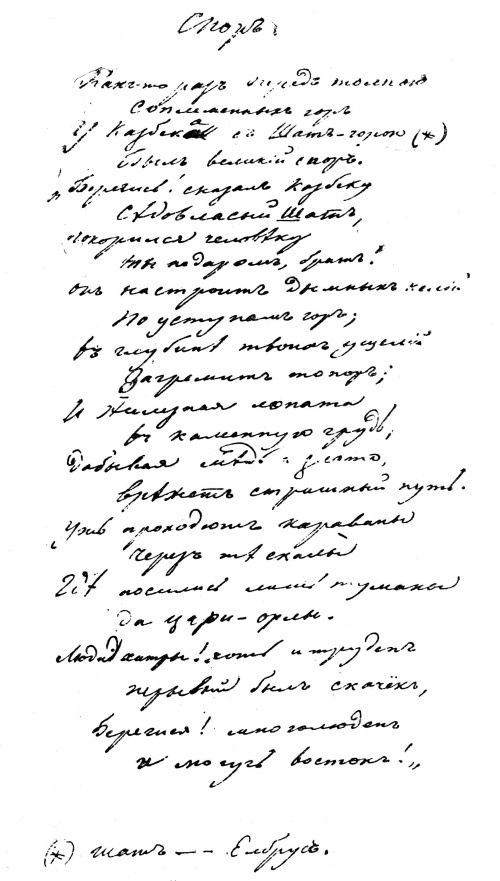 Споръ.
Какъ-то разъ передъ толпою
Соплеменныхъ горъ
У Казбека съ Шатъ-горою (*)
Былъ великій споръ.
„Берегись! сказалъ Казбеку
Сѣдовласый Шатъ,
Покорился человѣку
Ты недаромъ, братъ!
Онъ настроитъ дымныхъ келій
По уступамъ горъ;
Въ глубинѣ твоихъ ущелій
Загремитъ топоръ;
И желѣзная лопата
Въ каменную грудь,
Добывая мѣдь и злато,
Врѣжетъ страшный путь.
Ужъ проходютъ караваны
Черезъ тѣ скалы
Гдѣ носились лишь туманы
Да цари-орлы.
Люди хитры! хоть и труденъ
Первый былъ скачёкъ,
Берегися! многолюденъ
И могучъ востокъ!„
(*) Шатъ — - Елбрусъ.